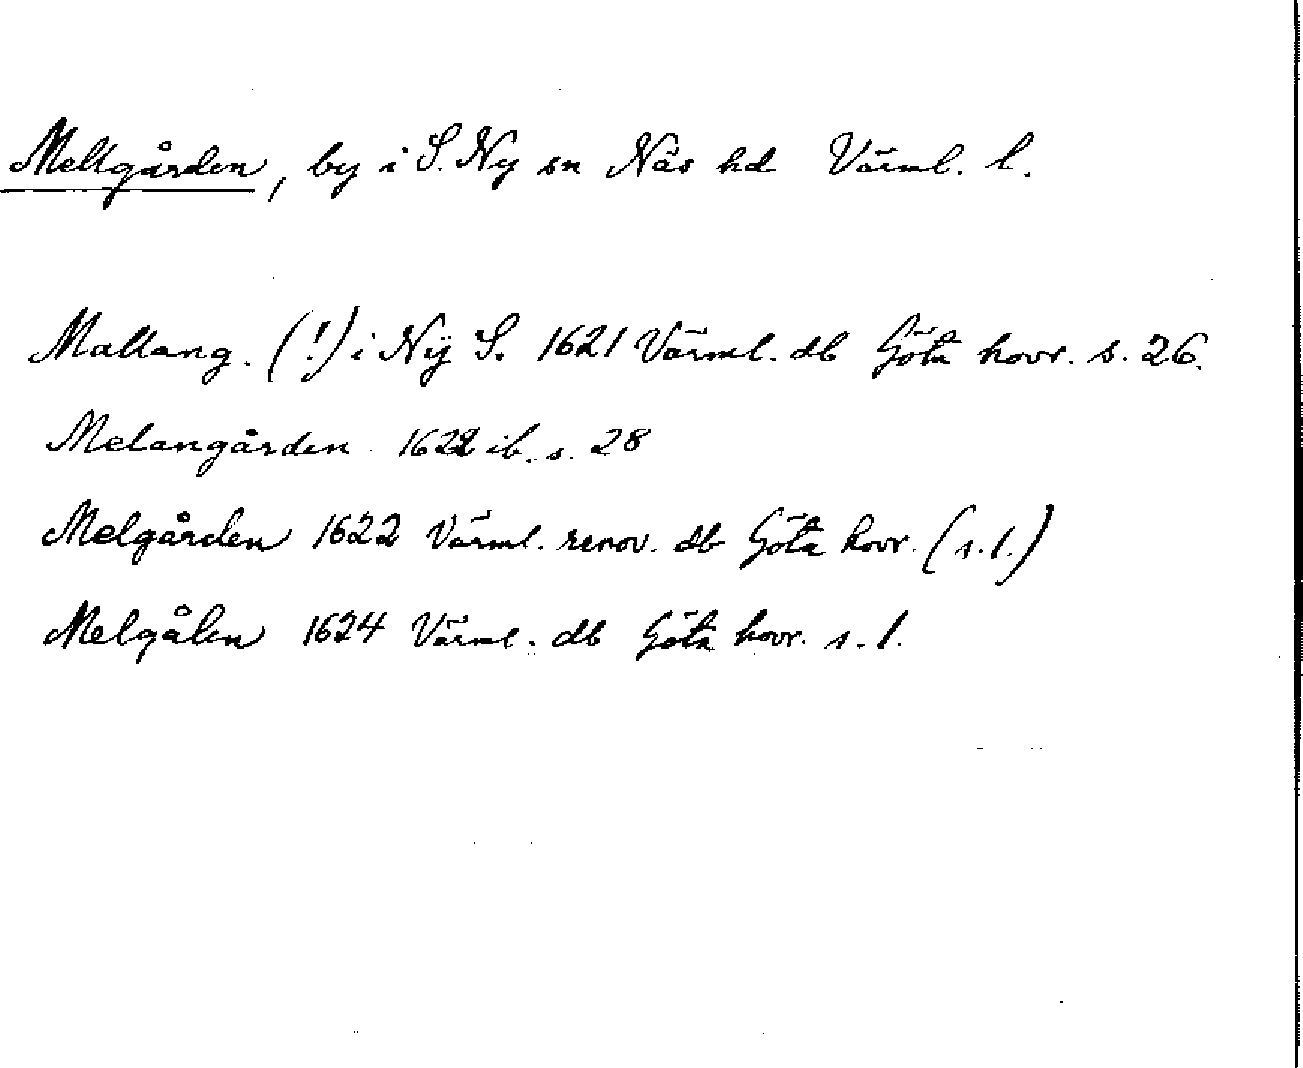 Mellgården, by i S. Ny sn Näs hd Värml. l.
Mallang. (!) i Nÿ S. 1621 Värml. db Göta hovr. s. 26.
Melangården 1622 ib. s. 28
Melgården 1622 Värml. renov. db Göta hovr. (s. 1.)
Melgålen 1624 Värml. db Göta hovr. s. 1.